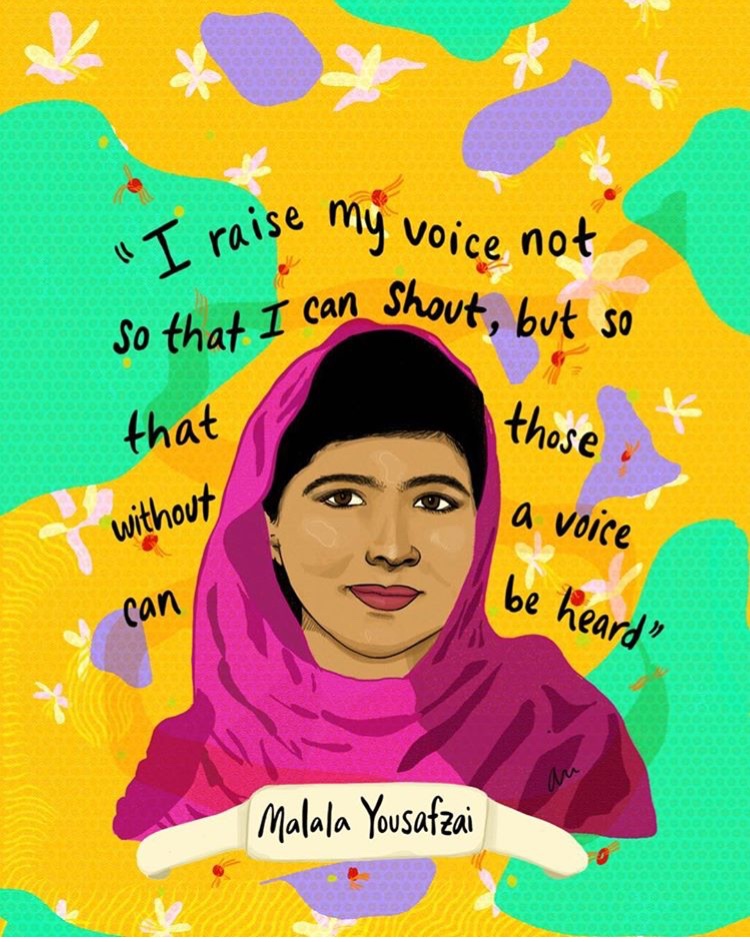 “I raise my voice not
so that I can shout, but so
that those
without a voice
can be heard”
Malala Yousafzai